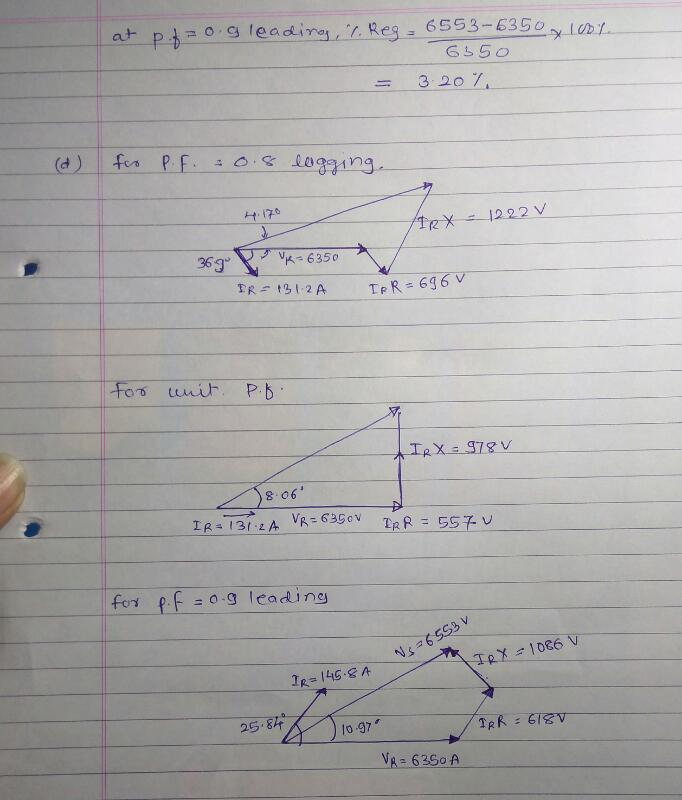 at p.f = 0.9 leading, % Reg = 6553-6350/6350 x 100%
= 3.20 %.
(d) for P.F. = 0.8 lagging.
4.17°
IRX = 1222 V
36.9° VR = 6350
IR = 131.2 A IRR = 696 V
for unit P.f.
IRX = 978 V
8.06°
IR = 131.2 A VR = 6350V IRR = 557 V
for p.f = 0.9 leading
Vs = 6553 V
IRX = 1086 V
IR = 145.8 A
25.84° 10.97° IRR = 618V
VR = 6350 A